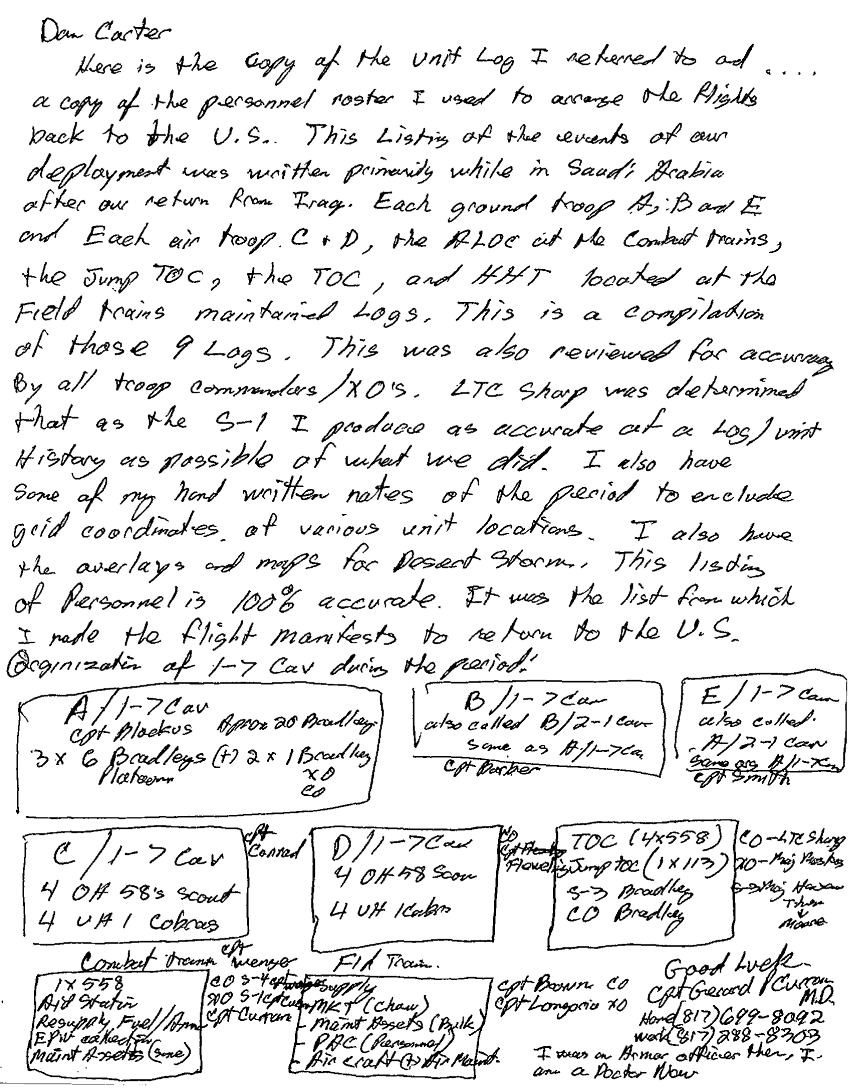 Dan Carter
Here is the Copy of the Unit Log I referred to ad ....
a copy of the personnel roster I used to arrange the flights
back to the U.S.. This Listing of the events of our
deployment was written primarily while in Saudi Arabia
after our return from Iraq. Each ground troop A, B and E
and Each air troop C + D, the ALOC at the Combat trains,
the Jump TOC, the TOC, and HHT located at the
Field trains maintained Logs. This is a compilation
of those 9 Logs. This was also reviewed for accuracy
By all troop commanders/XO's. LTC Sharp was determined
that as the S-1 I produce as accurate of a Log/unit
History as possible of what we did. I also have
some of my hand written notes of the period to enclude
grid coordinates of various unit locations. I also have
the overlays and maps for Desert Storm. This listing
of Personnel is 100% accurate. It was the list from which
I made the flight manifests to return to the U.S.
Orginization of 1-7 Cav during the period:
A/1-7 Cav
Cpt Blackus Aprox 20 Bradleys
3 x 6 Bradleys (+) 2 x 1 Bradley
Platoon XO
CO
B/1-7 Cav
also called B/2-1 Cav
same as A/1-7 Cav
Cpt Barber
E/1-7 Cav
also called
A/2-1 Cav
same as A/1-7 Cav
Cpt Smith
C/1-7 Cav
4 OH 58's Scout
4 UH 1 Cobras
Cpt Conrad
D/1-7 Cav
4 OH 58 Scou
4 UH 1 Cobra
TOC (4x558)
Jump TOC (1x113)
S-3 Bradley
CO Bradley
CO-LTC Sharp
XO-Maj
S-3 Maj
Then
Moore
Combat trains Cpt Wenger
1x558
Aid Station
Resupply Fuel/Amm
EPW collection
Maint Assets (some)
CO S-4 Cpt
XO S-1 Cpt Curran
Cpt Curran
Fld Train.
- Supply
- MKT (Chow)
- Maint Assets (Bulk)
- PAC (Personnel)
- Air craft (+) Air Maint.
Cpt Brown CO
Cpt Longoria XO
Good Luck
Cpt Gerard Curran
M.D.
Home (817) 699-8092
work (817) 288-8303
I was an Armor officer then, I
am a Doctor Now